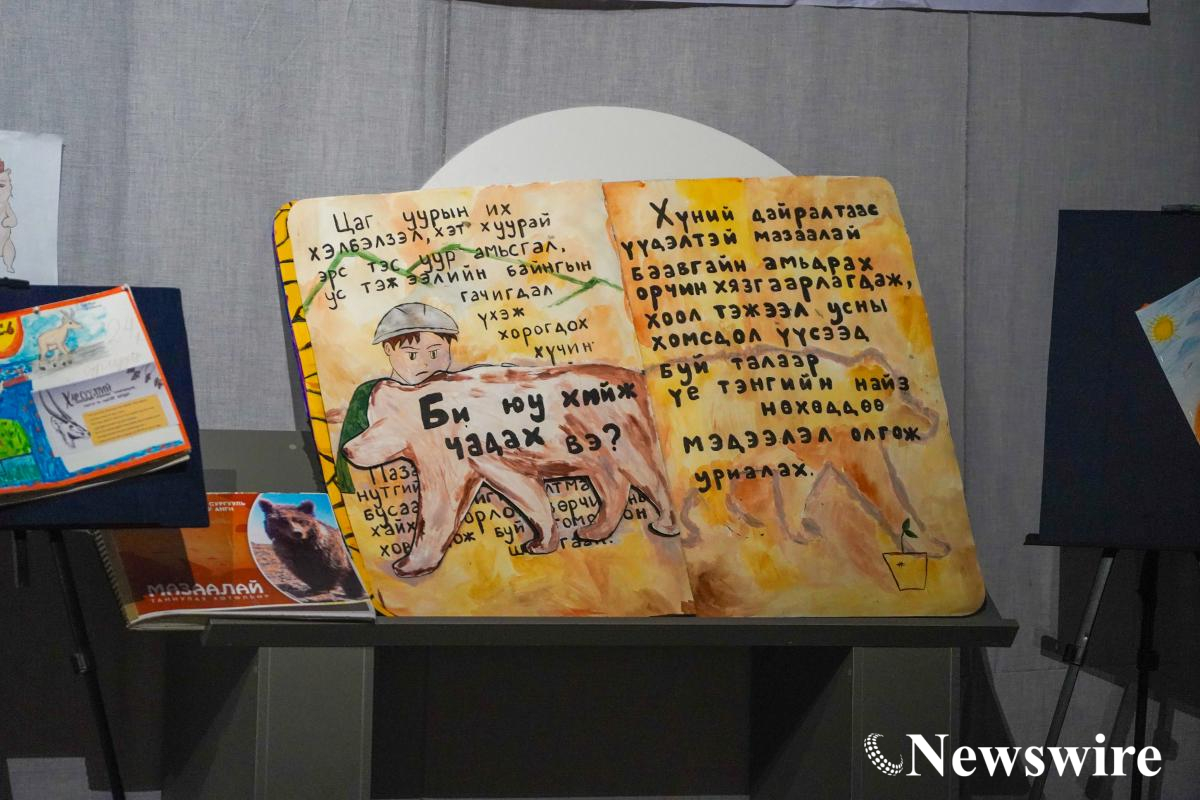 Цаг уурын их
хэлбэлзэл, хэт хуурай
эрс тэс уур амьсгал,
ус тэжээлийн байнгын
гачигдал
үхэж
хорогдох
хүчин
Би юу хийж
чадах вэ?
нутгий
Хүний дайралтаас
үүдэлтэй мазаалай
баавгайн амьдрах
орчин хязгаарлагдаж,
хоол тэжээл усны
хомсдол үүсээд
буй талаар
үе тэнгийн найз
нөхөддөө
мэдээлэл олгож
уриалах.
МАЗААЛАЙ
Newswire